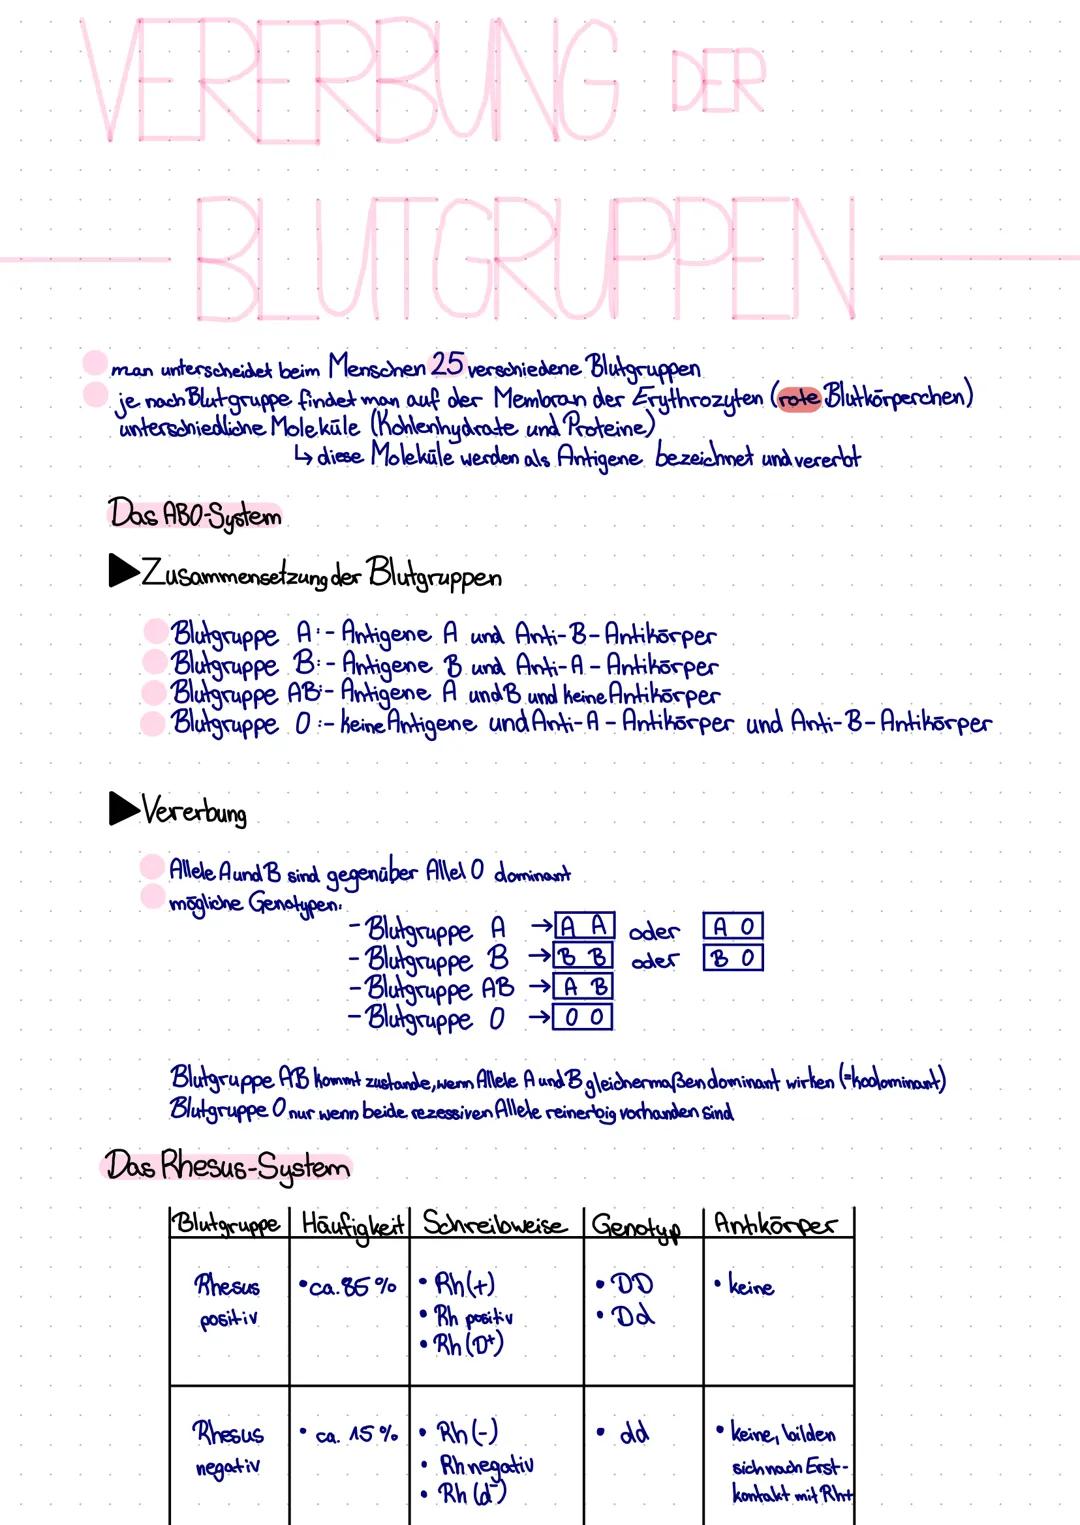 VERERBUNG DER
BLUTGRUPPEN
man unterscheidet beim Menschen 25 verschiedene Blutgruppen
je nach Blutgruppe findet man auf der Membran der Erythrozyten (rote Blutkörperchen)
unterschiedliche Moleküle (Kohlenhydrate und Proteine)
↳ diese Moleküle werden als Antigene bezeichnet und vererbt
Das ABO-System
▶ Zusammensetzung der Blutgruppen
Blutgruppe A:- Antigene A und Anti-B-Antikörper
Blutgruppe B:- Antigene B und Anti-A-Antikörper
Blutgruppe AB:- Antigene A und B und keine Antikörper
Blutgruppe 0:- keine Antigene und Anti-A-Antikörper und Anti-B-Antikörper
▶ Vererbung
Allele A und B sind gegenüber Allel 0 dominant
mögliche Genotypen:
- Blutgruppe A → A A oder A 0
- Blutgruppe B → B B oder B 0
- Blutgruppe AB → A B
- Blutgruppe 0 → 0 0
Blutgruppe AB kommt zustande, wenn Allele A und B gleichermaßen dominant wirken (=kodominant)
Blutgruppe 0 nur wenn beide rezessiven Allele reinerbig vorhanden sind
Das Rhesus-System
Blutgruppe Häufigkeit Schreibweise Genotyp Antikörper
Rhesus • ca. 85 % • Rh (+) • DD • keine
positiv • Rh positiv • Dd
• Rh (D+)
Rhesus • ca. 15 % • Rh (-) • dd • keine, bilden
negativ • Rh negativ sich nach Erst-
• Rh (d-) kontakt mit Rh+